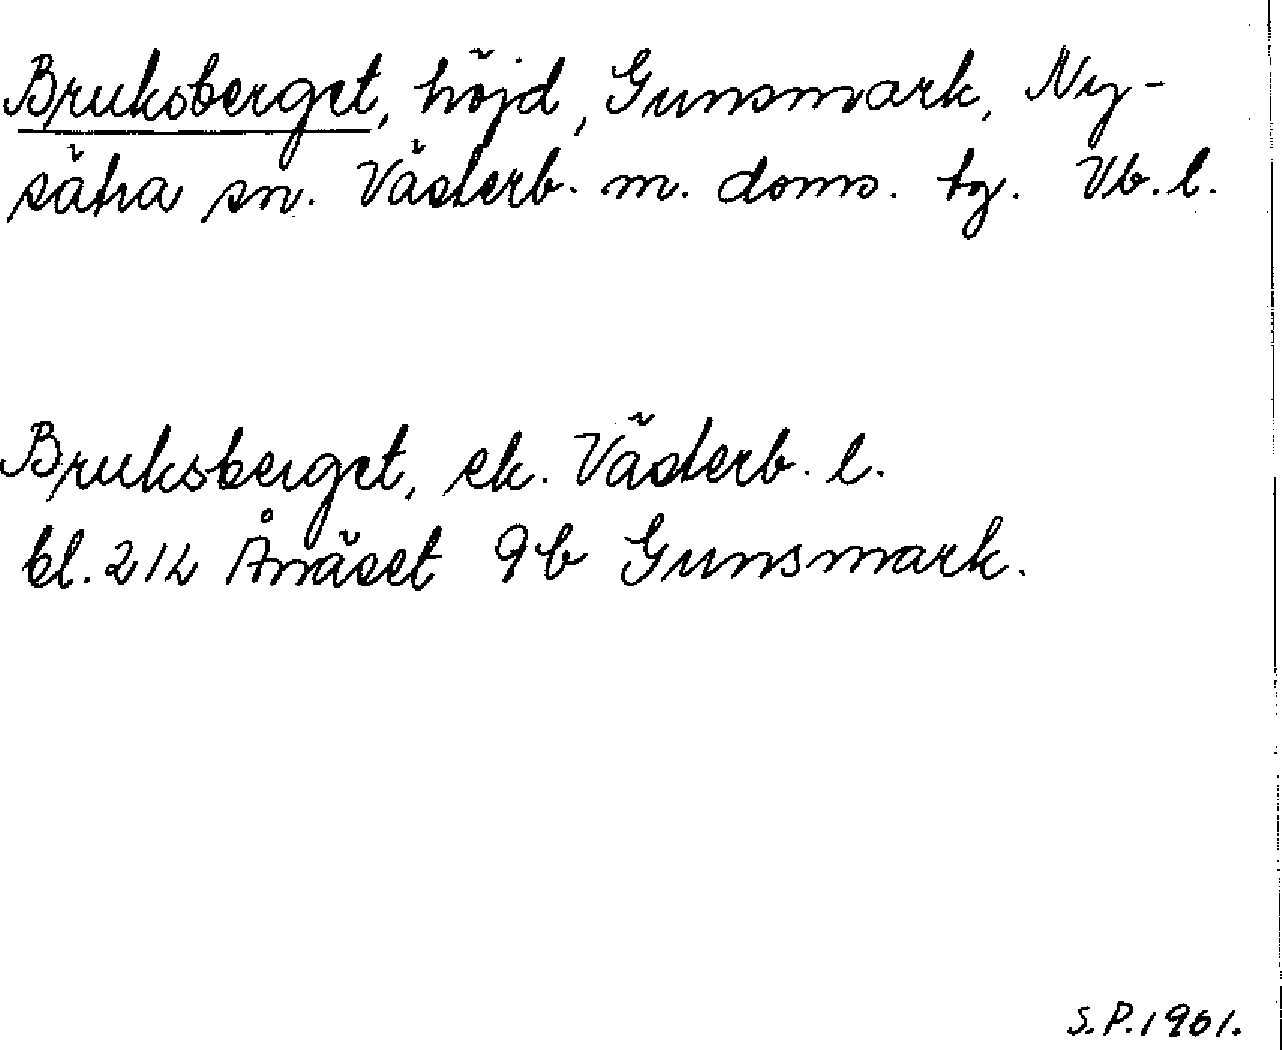 Bruksberget, höjd, Gunsmark, Ny-
sätra sn. Västerb. m. doms. tg. Vb. l.
Bruksberget, ek. Västerb. l.
bl. 212 Ånäset 9b Gunsmark.
S.P. 1961.